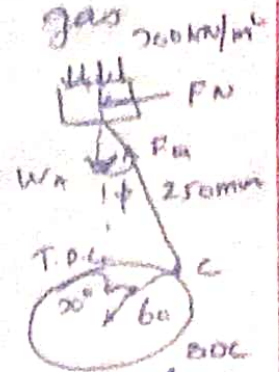 gas
700 KN/m²
FN
FQ
WR
φ
250mm
T.D.C
C
30°
60
BDC